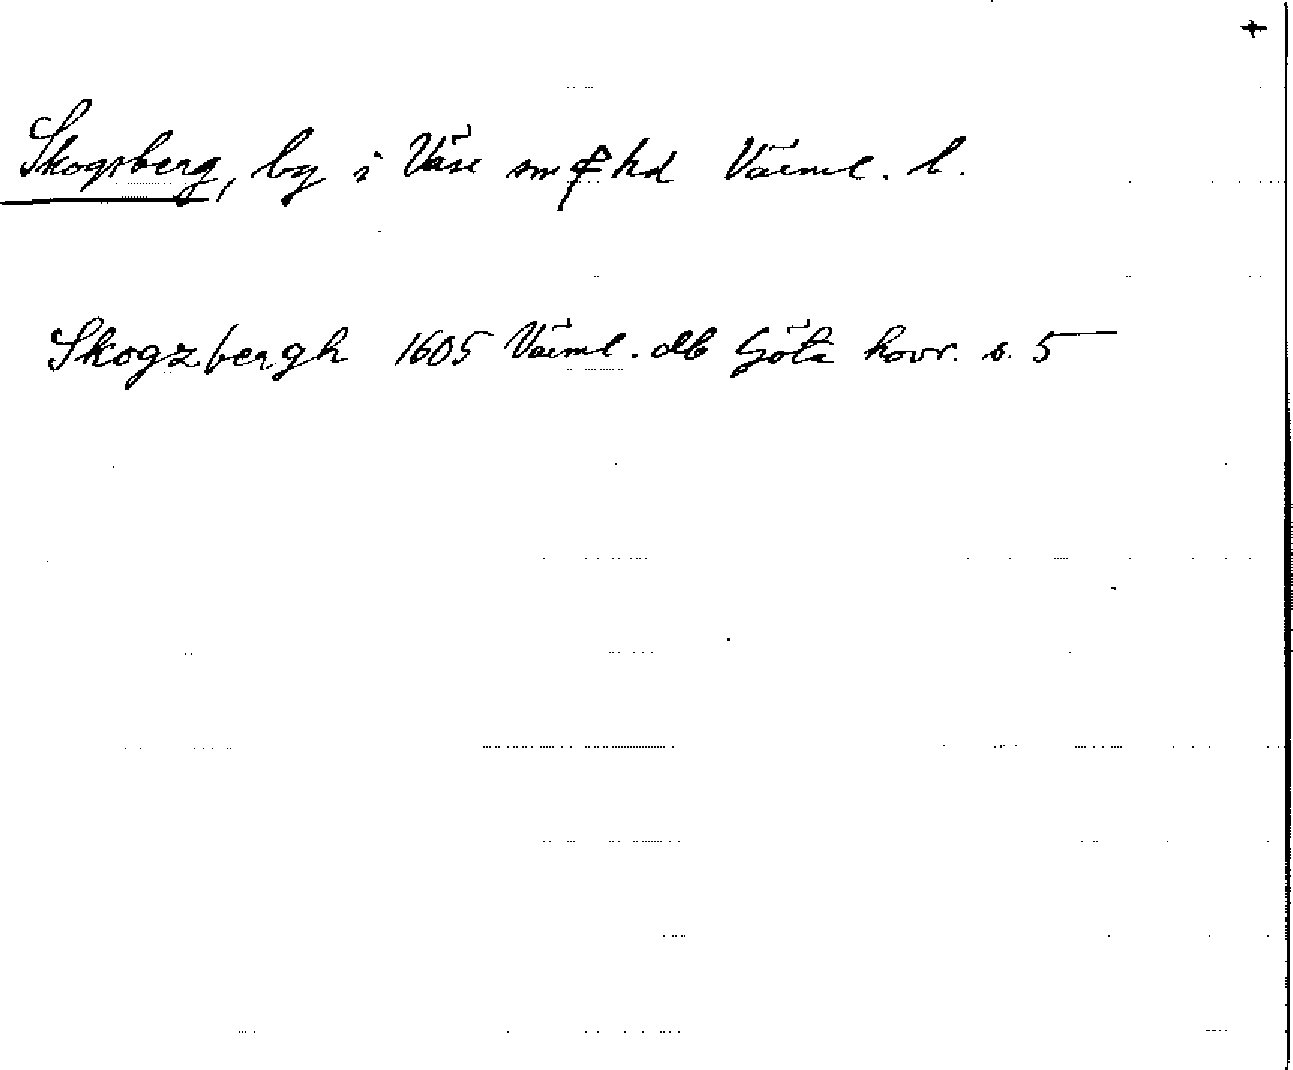 +
Skogsberg, by i Väse sn & hd Värml. l.
Skogzbergh 1605 Värml. db Göta hovr. s. 5